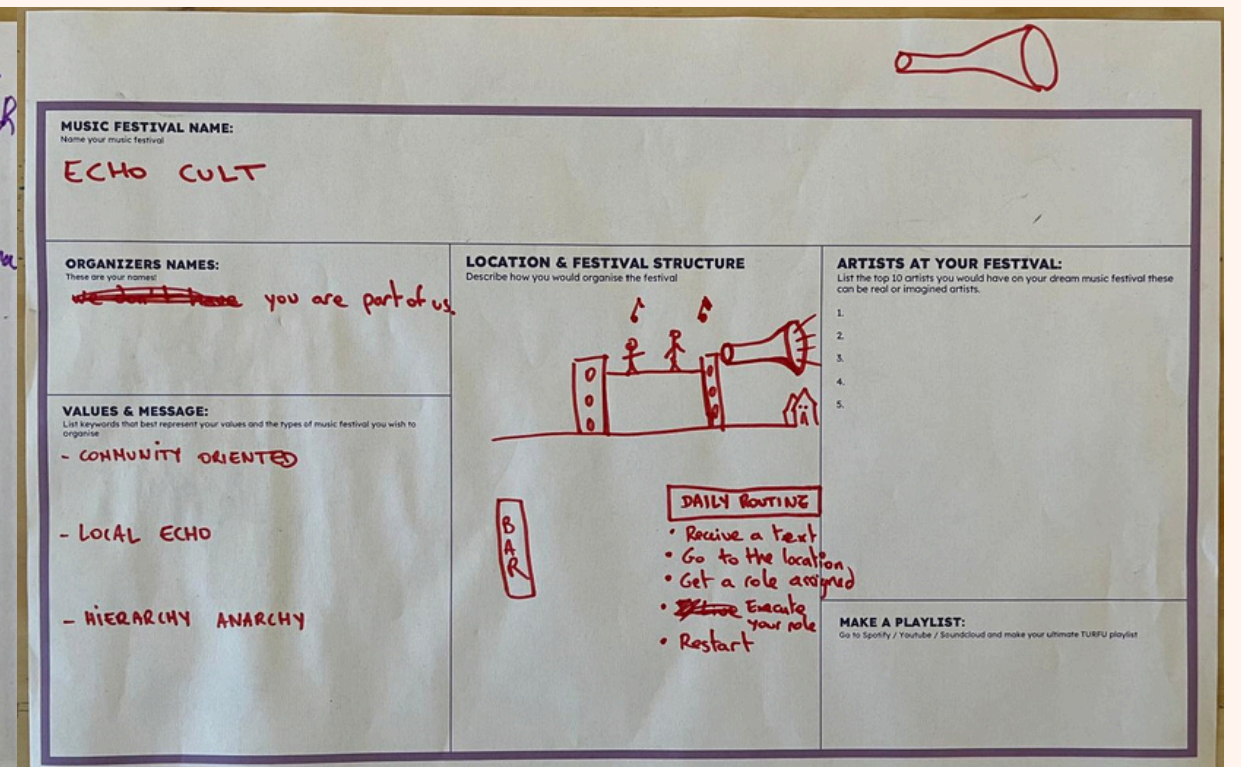 MUSIC FESTIVAL NAME:
Name your music festival
ECHO CULT
ORGANIZERS NAMES:
These are your names!
we don't have you are part of us.
VALUES & MESSAGE:
List keywords that best represent your values and the types of music festival you wish to
organise
- COMMUNITY ORIENTED
- LOCAL ECHO
- HIERARCHY ANARCHY
LOCATION & FESTIVAL STRUCTURE
Describe how you would organise the festival
BAR
DAILY ROUTINE
• Receive a text
• Go to the location
• Get a role assigned
• Execute
your role
• Restart
ARTISTS AT YOUR FESTIVAL:
List the top 10 artists you would have on your dream music festival these
can be real or imagined artists.
1.
2.
3.
4.
5.
MAKE A PLAYLIST:
Go to Spotify / Youtube / Soundcloud and make your ultimate TURFU playlist